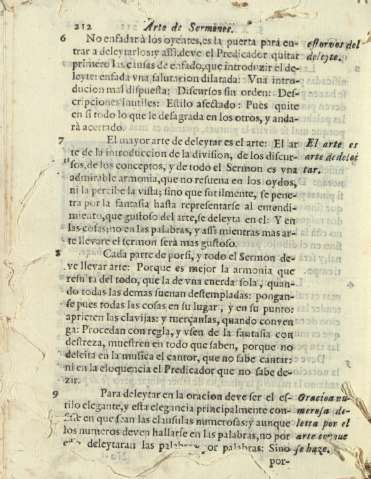 212 Arte de Sermones.
6 No enfadarà los oyentes, es la puerta para en- estorvos del
trar a deleytarlos: y assi deve el Predicador quitar deleyte.
primero las causas de enfado, que introduzir el de-
leyte: enfada vna salutacion dilatada: Vna intro-
ducion mal dispuesta: Discursos sin orden: Des-
cripciones inutiles: Estilo afectado: Pues quite
en si todo lo que le desagrada en los otros, y anda-
rà acertado.
7 El mayor arte de deleytar es el arte: El ar El arte es
te de la introduccion de la division, de los discur- arte de deley
sos, de los conceptos, y de todo el Sermon es vna tar.
admirable armonia, que no resuena en los oydos,
ni la percibe la vista; sino que sutilmente, se pene-
tra por la fantasia hasta representarse al entendi-
miento, que gustoso del arte, se deleyta en el: Y en
las cosas; no en las palabras, y assi mientras mas ar-
te llevare el sermon serà mas gustoso.
8 Cada parte de porsi, y todo el Sermon de-
ve llevar arte: Porque es mejor la armonia que
resulta del todo, que la de vna cuerda sola, quan-
do todas las demas suenan destempladas: pongan-
se pues todas las cosas en su lugar, y en su punto:
aprieten las clavijas: y tuerçanlas, quando conven
ga: Procedan con regla, y vsen de la fantasia con
destreza, muestren en todo que saben, porque no
deleita en la musica el cantor, que no sabe cantar:
ni en la eloquencia el Predicador que no sabe de-
zir.
9 Para deleytar en la oracion deve ser el es- Oracion nu
tilo elegante, y esta elegancia principalmente con- merosa de-
siste en que sean las clausulas numerosas: y aunque leyta por el
los numeros deven hallarse en las palabras, no por arte con que
deleytaran las palabras por palabras: Sino se haze.
por-